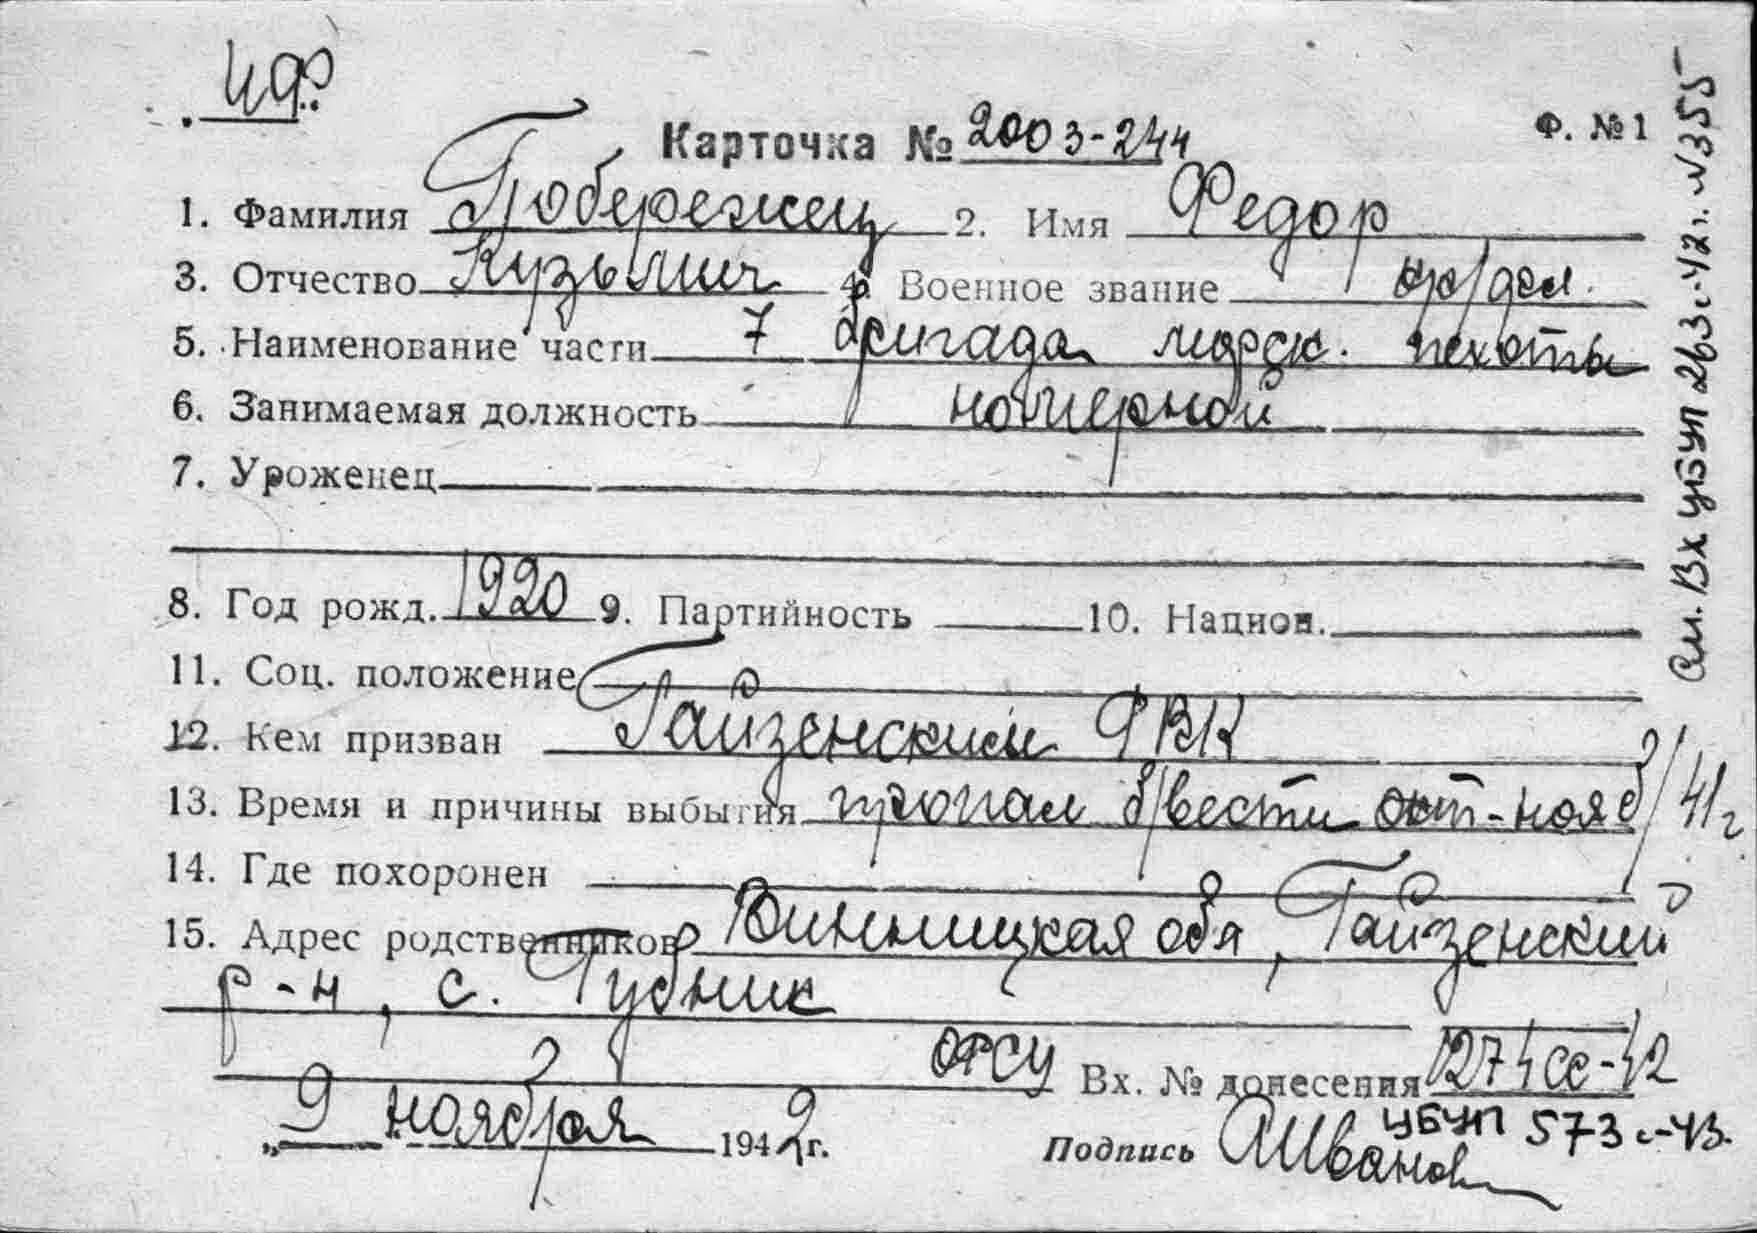 Карточка № 2003-244
Ф. № 1
1. Фамилия Побережец 2. Имя Федор
3. Отчество Кузьмич 4. Военное звание кр/фл.
5. Наименование части 7 бригада морск. пехоты
6. Занимаемая должность номерной
7. Уроженец
8. Год рожд. 1920 9. Партийность 10. Национ.
11. Соц. положение
12. Кем призван Гайзенским РВК
13. Время и причины выбытия пропал б/вести окт-нояб/41г
14. Где похоронен
15. Адрес родственников Винницкая обл, Гайзенский
р-н, с. Губник
ОРСУ Вх. № донесения 1274сс-42
ЦБУП 573с-43.
„9 ноября 1942г. Подпись АИванов
См. Вх ЦБУП 263с-42г. №355